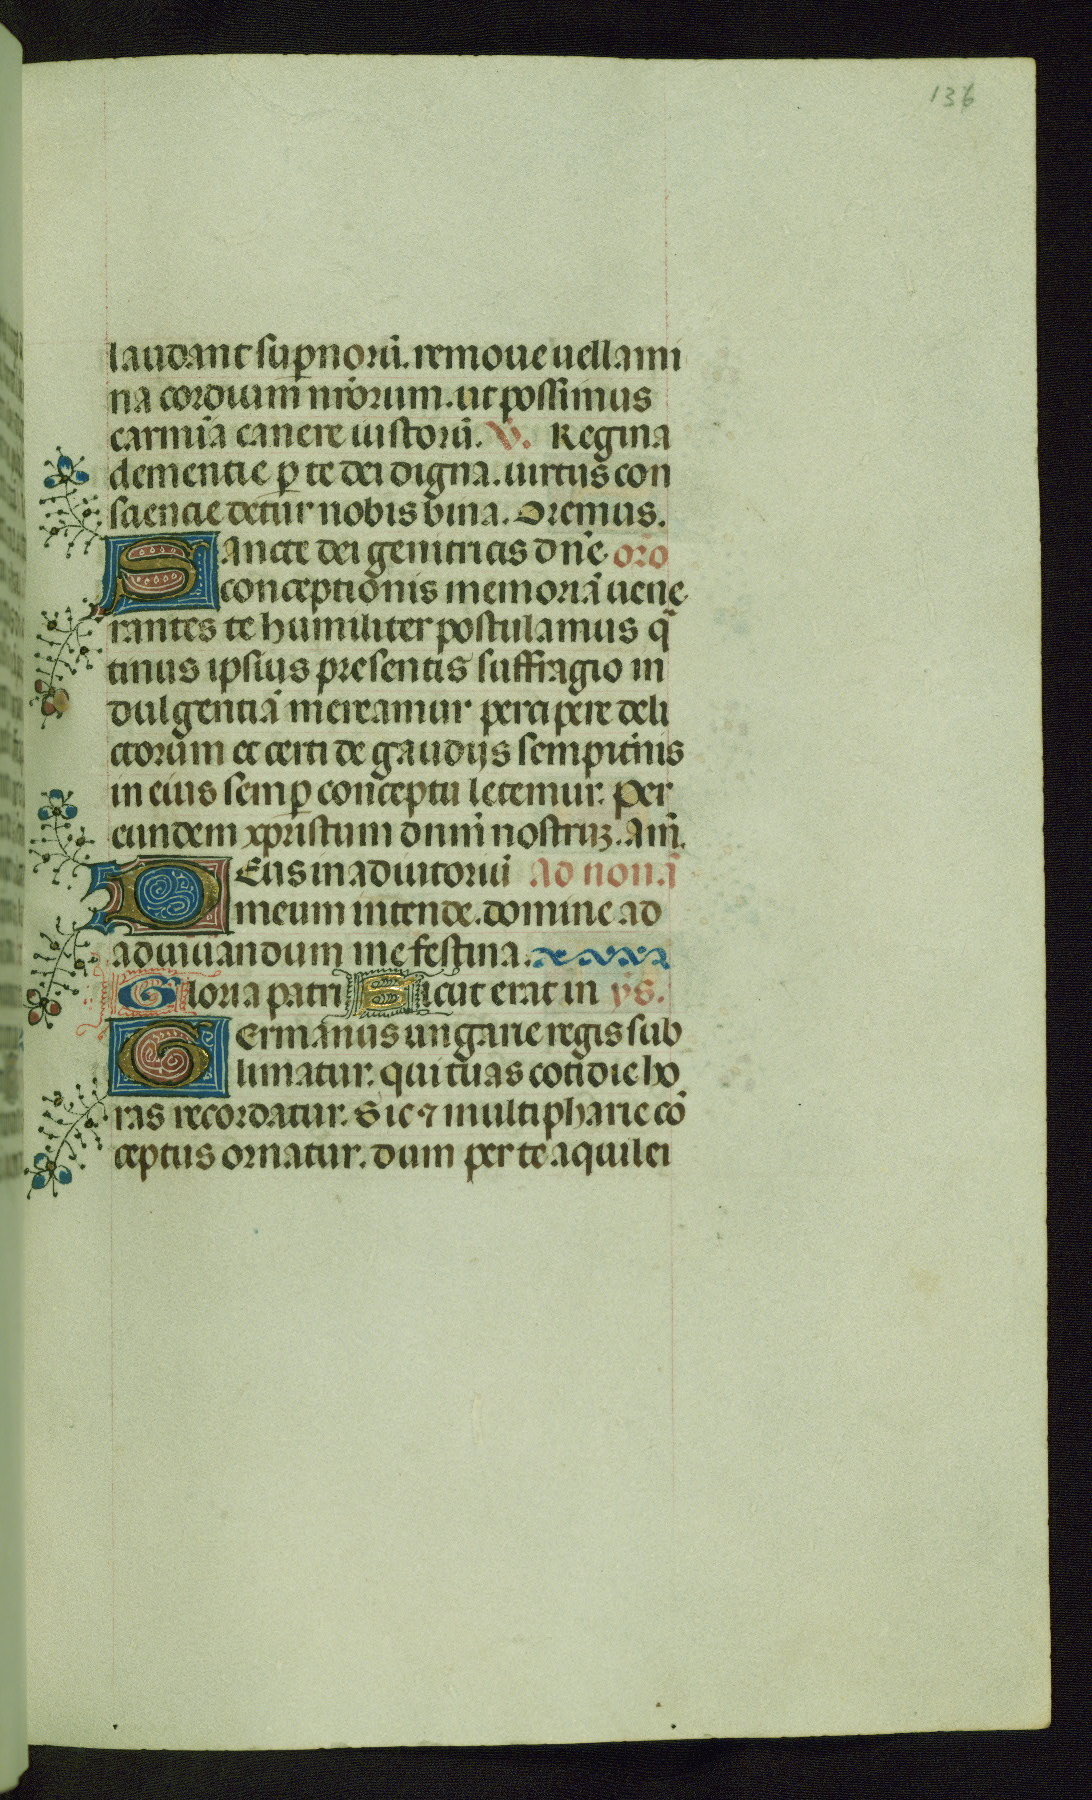 136
laudant sup̱noru̅. remoue uellami
na cordium nr̅orum. ut possimus
carmi̅a canere iustoru̅. V. Regina
clementie p̱ te dei digna. uirtus con
sciencie detur nobis bina. Oremus.
Sancte dei genitricis dn̅e oro̅
conceptionis memoria̅ uene
rantes te humiliter postulamus q̅
tinus ipsius presentis suffragio in
dulgentia̅ mereamur percipere deli
ctorum et certi de gaudijs sempit̅nis
in eius semp̱ conceptu letemur. Per
eundem xpristum dnm̅ nostruꝫ. Am̅.
Deus in adiutoriu̅ Ad nona̅
meum intende. domine ad
adiuuandum me festina.
Gloria patri Sicut erat in ys.
Germanus ungarie regis sub
limatur. qui tuas cotidie ho
ras recordatur. Sic ⁊ multipharie co̅
ceptus ornatur. dum per te aquilei